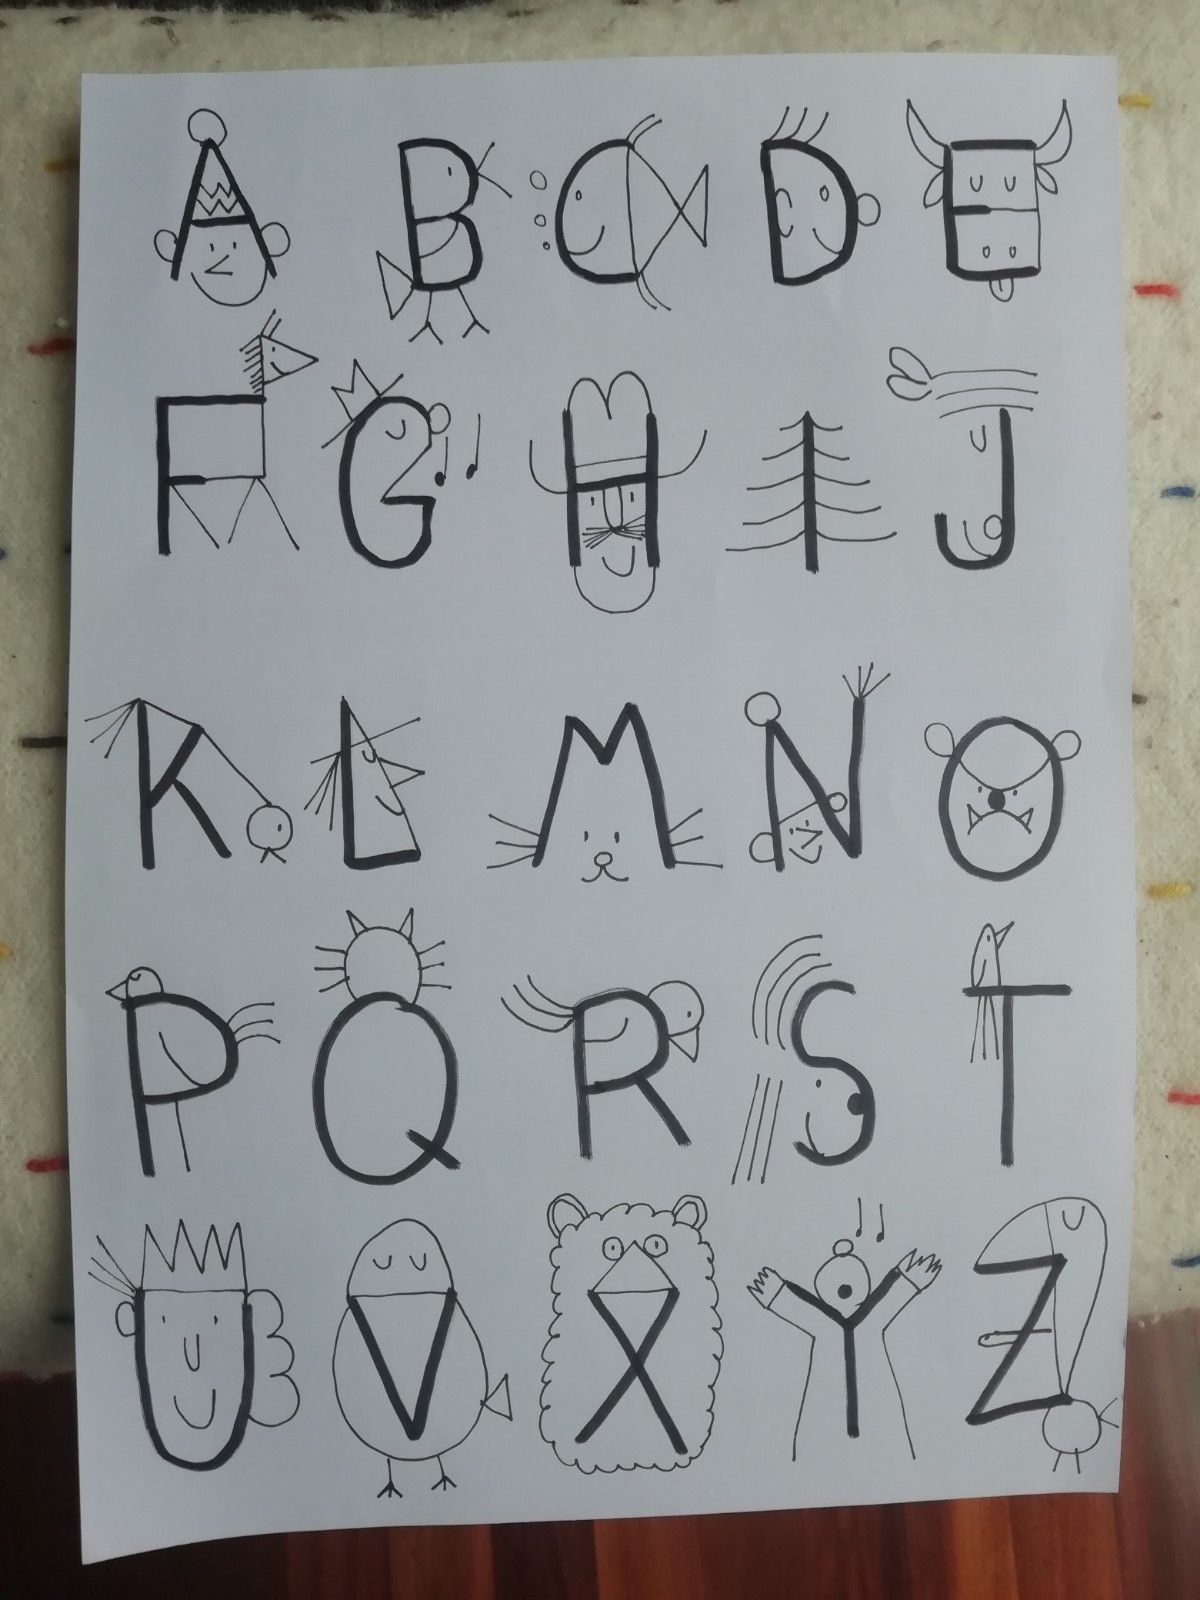 A B C D E
F G H I J
K L M N O
P Q R S T
U V X Y Z